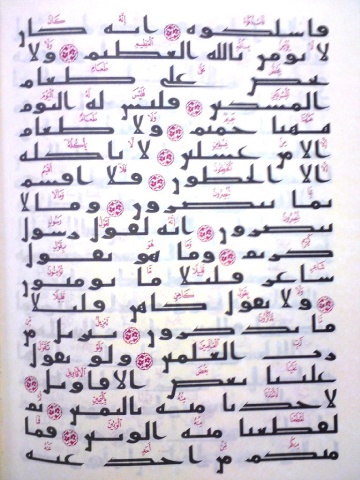 فاسلكوه ۝ انه كان
لا يومن بالله العظيم ۝ ولا
يحض على طعام
المسكين ۝ فليس له اليوم
ههنا حميم ۝ ولا طعام
الا من غسلين ۝ لا ياكله
الا الخطون ۝ فلا اقسم
بما تبصرون ۝ وما لا
تبصرون ۝ انه لقول رسول
كريم ۝ وما هو بقول
شاعر قليلا ما تومنون
۝ ولا بقول كاهن قليلا
ما تذكرون ۝ تنزيل من
رب العلمين ۝ ولو تقول
علينا بعض الاقاويل ۝
لاخذنا منه باليمين ۝ ثم
لقطعنا منه الوتين ۝ فما
منكم من احد عنه